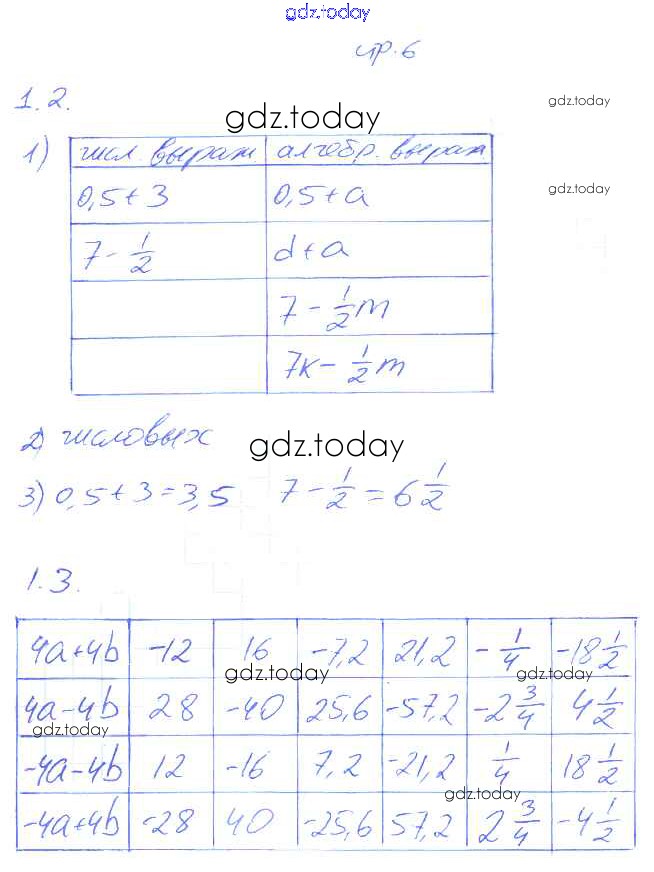 gdz.today
стр. 6
1.2.
gdz.today
gdz.today
1) числ. выраж. алгебр. выраж
0,5+3 0,5+a
gdz.today
7-1/2 d+a
7-1/2m
7k-1/2m
2) числовых
gdz.today
3) 0,5+3=3,5 7-1/2=6 1/2
1.3.
4a+4b -12 16 -7,2 21,2 -1/4 -18 1/2
gdz.today
gdz.today
4a-4b 28 -40 25,6 -57,2 -2 3/4 4 1/2
gdz.today
-4a-4b 12 -16 7,2 -21,2 1/4 18 1/2
gdz.today
-4a+4b -28 40 -25,6 57,2 2 3/4 -4 1/2